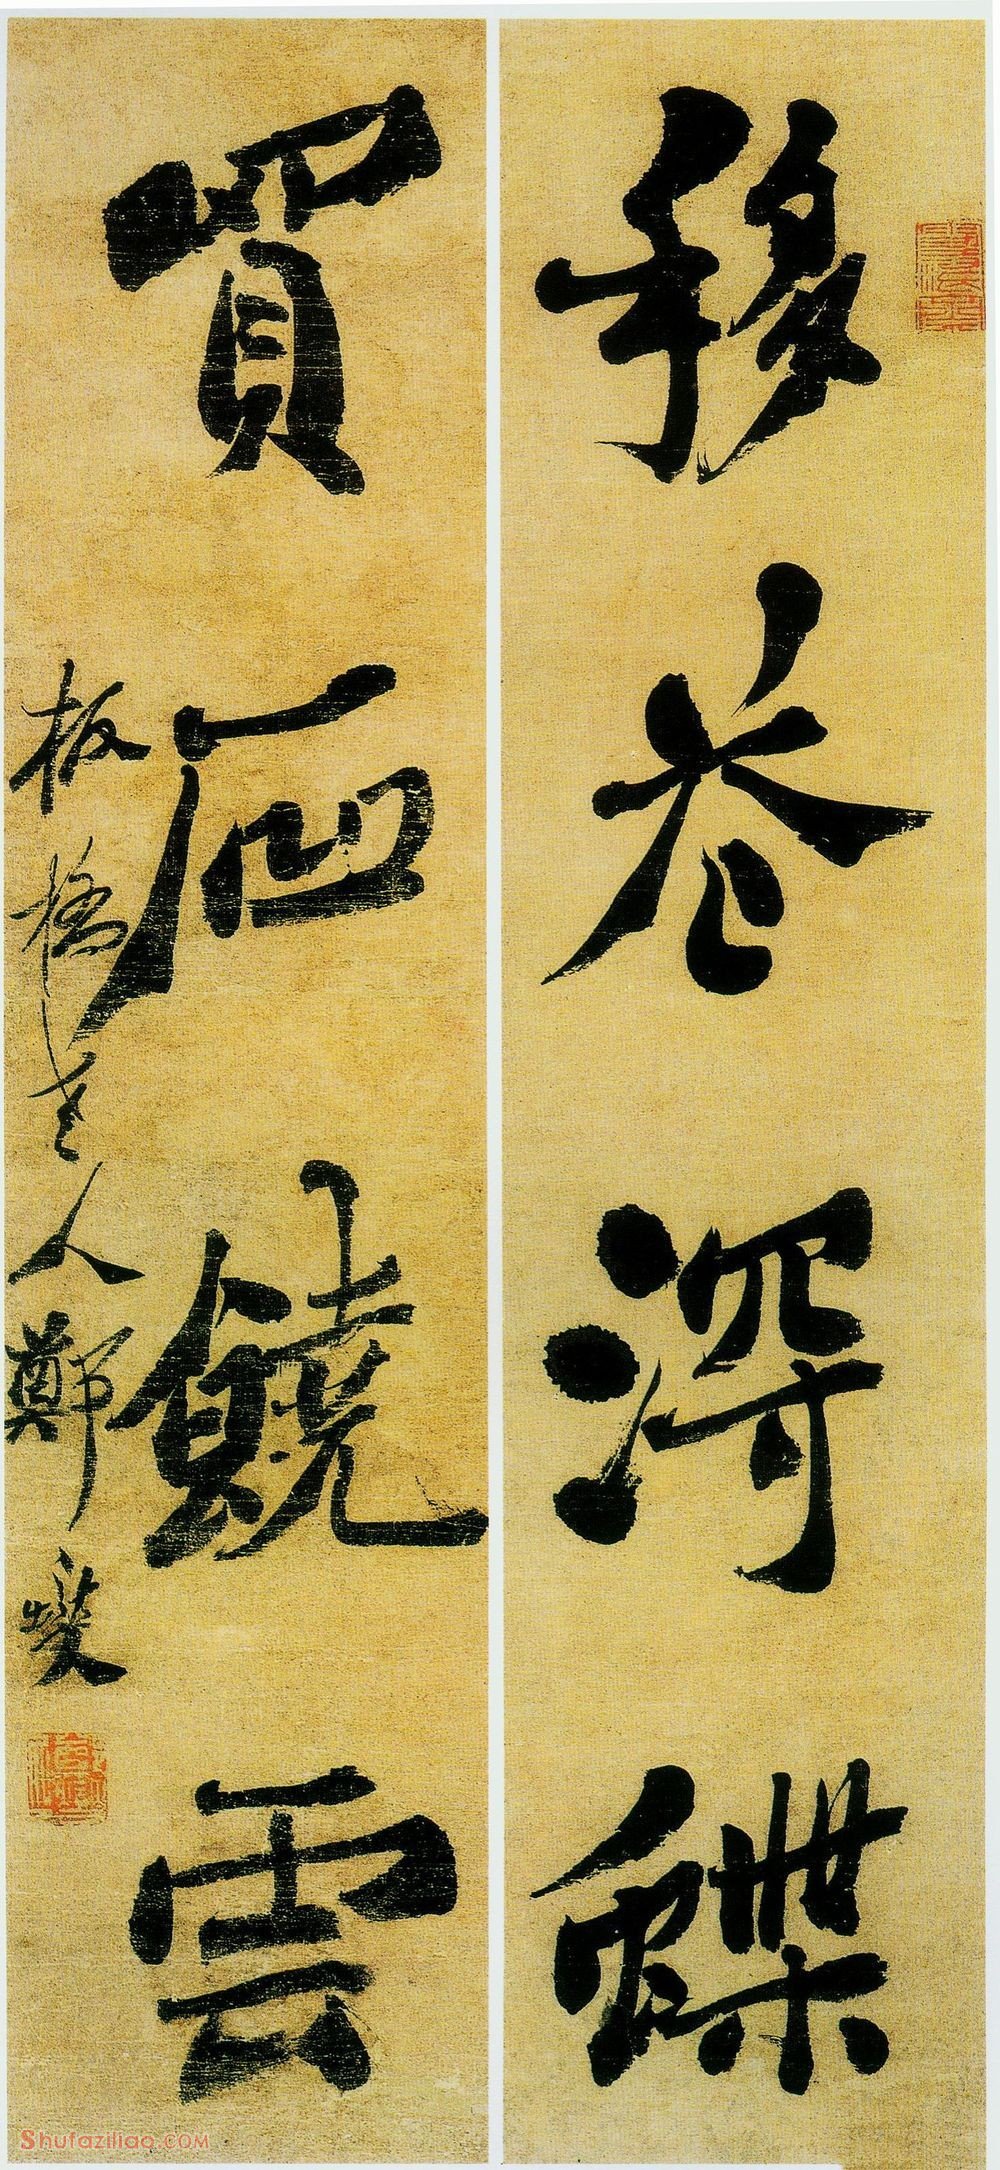 移花得蝶
買石饒雲
板橋老人鄭燮
Shufaziliao.COM